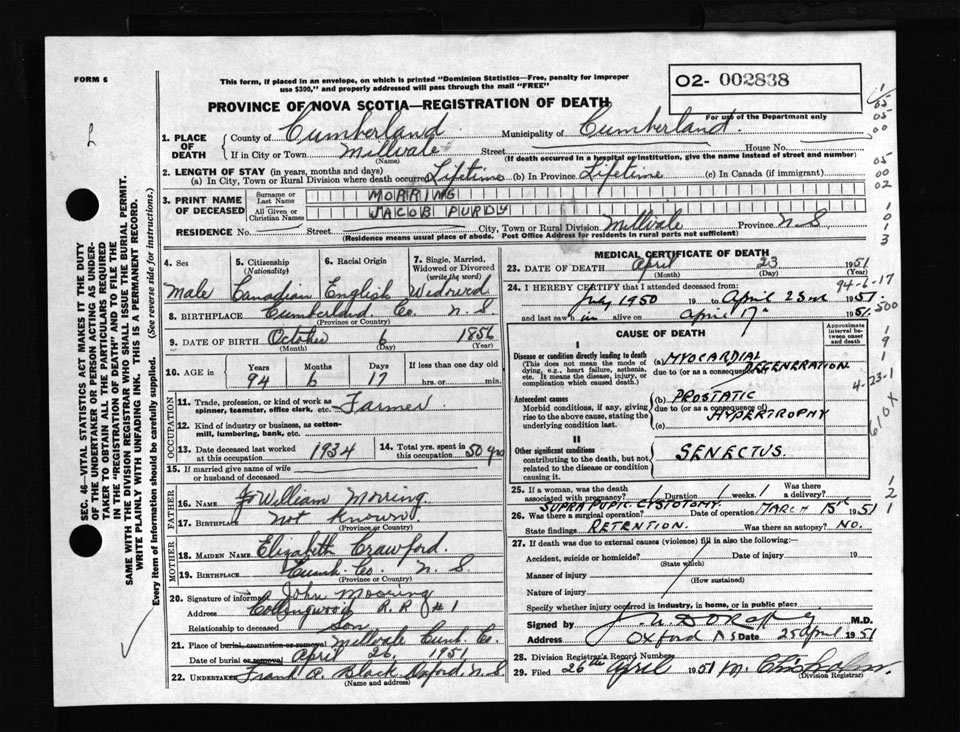 FORM 6
This form, if placed in an envelope, on which is printed "Dominion Statistics—Free, penalty for improper
use $300," and properly addressed will pass through the mail "FREE"
O2- 002838
For use of the Department only
PROVINCE OF NOVA SCOTIA—REGISTRATION OF DEATH
1. PLACE OF DEATH
County of Cumberland Municipality of Cumberland.
If in City or Town Millvale Street House No.
(Name) (If death occurred in a hospital or institution, give the name instead of street and number)
2. LENGTH OF STAY (in years, months and days)
(a) In City, Town or Rural Division where death occurred Lifetime (b) In Province Lifetime (c) In Canada (if immigrant)
3. PRINT NAME OF DECEASED
Surname or Last Name MORRING
All Given or Christian Names JACOB PURDY
RESIDENCE No. Street City, Town or Rural Division Millvale Province N S
(Residence means usual place of abode. Post Office Address for residents in rural parts not sufficient)
4. Sex
Male
5. Citizenship (Nationality)
Canadian
6. Racial Origin
English
7. Single, Married, Widowed or Divorced (write the word)
Widowed
8. BIRTHPLACE Cumberland Co. N. S.
(Province or Country)
9. DATE OF BIRTH October 6 1856
(Month) (Day) (Year)
10. AGE in Years Months Days If less than one day old
94 6 17 hrs. or min.
OCCUPATION
11. Trade, profession, or kind of work as spinner, teamster, office clerk, etc. Farmer
12. Kind of industry or business, as cotton-mill, lumbering, bank, etc.
13. Date deceased last worked at this occupation 1934
14. Total yrs. spent in this occupation 50 yrs
15. If married give name of wife or husband of deceased
FATHER
16. Name William Morring
17. Birthplace Not Known
(Province or Country)
MOTHER
18. MAIDEN NAME Elizabeth Crawford.
19. BIRTHPLACE Cumb. Co. N. S.
(Province or Country)
20. Signature of informant John Mooring
Address Collingwood R. R #1
Relationship to deceased Son
21. Place of burial, cremation or removal Millvale Cumb. Co.
Date of burial or removal April 26, 1951
22. UNDERTAKER Frank A. Black Oxford, N. S
(Name and address)
MEDICAL CERTIFICATE OF DEATH
23. DATE OF DEATH April 23 1951
(Month) (Day) (Year)
94-6-17
24. I HEREBY CERTIFY that I attended deceased from:
July 1950 19 to April 23rd 1951
and last saw h im alive on April 17 1951
500
CAUSE OF DEATH
Approximate interval between onset and death
I
Disease or condition directly leading to death
(This does not mean the mode of dying, e.g., heart failure, asthenia, etc. It means the disease, injury, or complication which caused death.)
(a) MYOCARDIAL
due to (or as a consequence of) DEGENERATION
4-23-1
Antecedent causes
Morbid conditions, if any, giving rise to the above cause, stating the underlying condition last.
(b) PROSTATIC
due to (or as a consequence of) HYPERTROPHY
(c)
610X
II
Other significant conditions
contributing to the death, but not related to the disease or condition causing it.
SENECTUS.
25. If a woman, was the death associated with pregnancy? Duration weeks. Was there a delivery?
SUPRAPUBIC CYSTOTOMY
26. Was there a surgical operation? Date of operation MARCH 15 1951
State findings RETENTION. Was there an autopsy? NO.
27. If death was due to external causes (violence) fill in also the following:—
Accident, suicide or homicide? Date of injury 19
(State which)
Manner of injury
(How sustained)
Nature of injury
Specify whether injury occurred in industry, in home, or in public place
Signed by M.D.
Address Oxford N S Date 25 April 1951
28. Division Registrar's Record Number
29. Filed 26th April 1951 M. Chisholm.
(Division Registrar)
SEC. 46—VITAL STATISTICS ACT MAKES IT THE DUTY
OF THE UNDERTAKER OR PERSON ACTING AS UNDER-
TAKER TO OBTAIN ALL THE PARTICULARS REQUIRED
IN THE "REGISTRATION OF DEATH" AND TO FILE THE
SAME WITH THE DIVISION REGISTRAR WHO SHALL ISSUE THE BURIAL PERMIT.
WRITE PLAINLY WITH UNFADING INK. THIS IS A PERMANENT RECORD.
Every item of information should be carefully supplied. (See reverse side for instructions.)